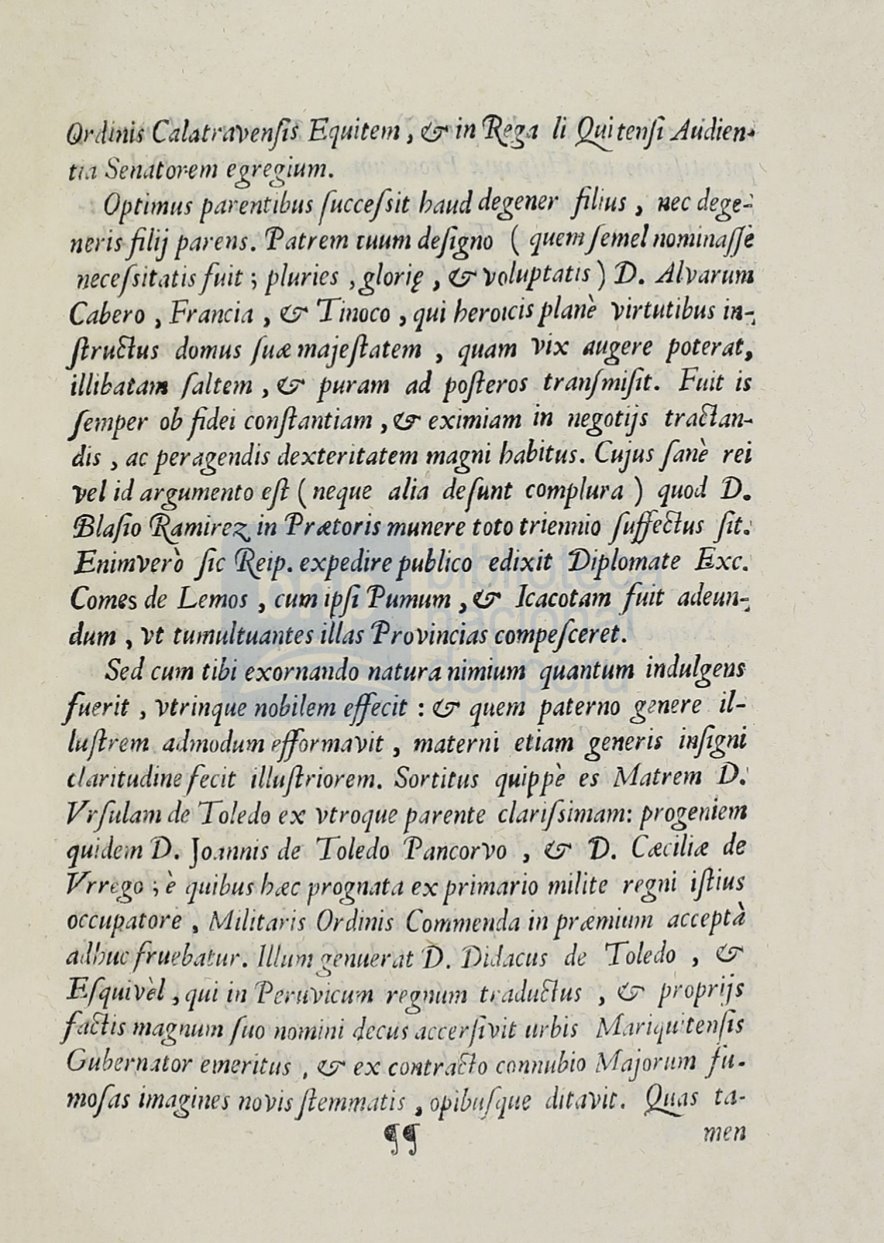 Ordinis Calatravenſis Equitem, & in Rega li Quitenſi Audien-
tia Senatorem egregium.
Optimus parentibus ſucceſsit haud degener filius, nec dege-
neris filij parens. Patrem tuum deſigno ( quem ſemel nominaſſè
neceſsitatis fuit; pluries, glorię, & voluptatis ) D. Alvarum
Cabero, Francia, & Tinoco, qui heroicis planè virtutibus in-
ſtructus domus ſuæ majeſtatem, quam vix augere poterat,
illibatam ſaltem, & puram ad poſteros tranſmiſit. Fuit is
ſemper ob fidei conſtantiam, & eximiam in negotijs tractan-
dis, ac peragendis dexteritatem magni habitus. Cujus ſanè rei
vel id argumento eſt ( neque alia deſunt complura ) quod D.
Blaſio Ramirez in Prætoris munere toto triennio ſuffectus ſit.
Enimverò ſic Reip. expedire publico edixit Diplomate Exc.
Comes de Lemos, cum ipſi Pumum, & Icacotam fuit adeun-
dum, vt tumultuantes illas Provincias compeſceret.
Sed cum tibi exornando natura nimium quantum indulgens
fuerit, vtrinque nobilem effecit: & quem paterno genere il-
luſtrem admodum efformavit, materni etiam generis inſigni
claritudine fecit illuſtriorem. Sortitus quippè es Matrem D.
Vrſulam de Toledo ex vtroque parente clariſsimam: progeniem
quidem D. Joannis de Toledo Pancorvo, & D. Cæciliæ de
Vrrego; è quibus hæc prognata ex primario milite regni iſtius
occupatore, Militaris Ordinis Commenda in præmium acceptà
adhuc fruebatur. Illum genuerat D. Didacus de Toledo, &
Eſquivèl, qui in Peruvicum regnum traductus, & proprijs
factis magnum ſuo nomini decus accerſivit urbis Mariquitenſis
Gubernator emeritus, & ex contracto connubio Majorum fu-
moſas imagines novis ſtemmatis, opibuſque ditavit. Quas ta-
¶¶ men